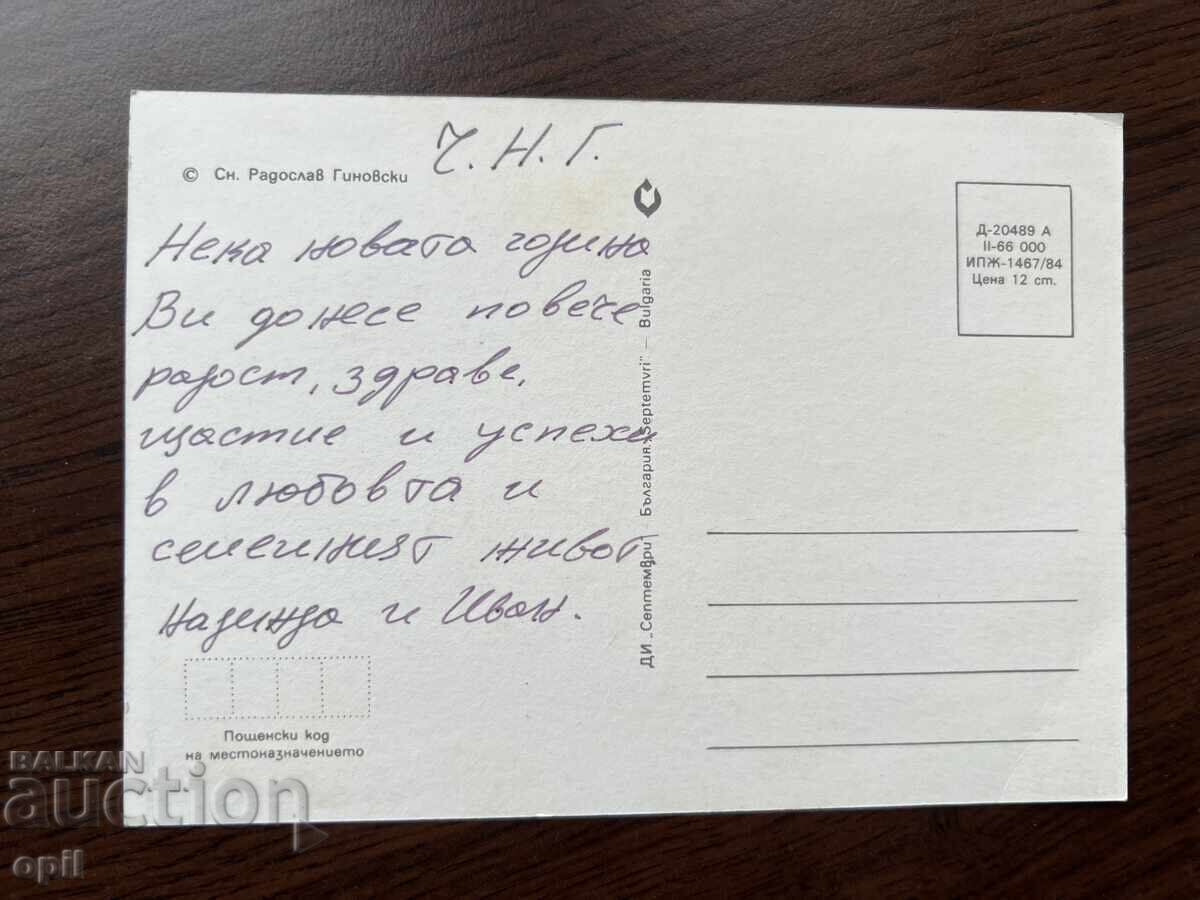 Ч. Н. Г.
© Сн. Радослав Гиновски
Нека новата година
Ви донесе повече
радост, здраве,
щастие и успехи
в любовта и
семейният живот
Надежда и Иван.
Пощенски код
на местоназначението
ДИ „Септември“ – България „Septemvri“ – Bulgaria
Д-20489 А
II-66 000
ИПЖ-1467/84
Цена 12 ст.
BALKAN
auction
opil